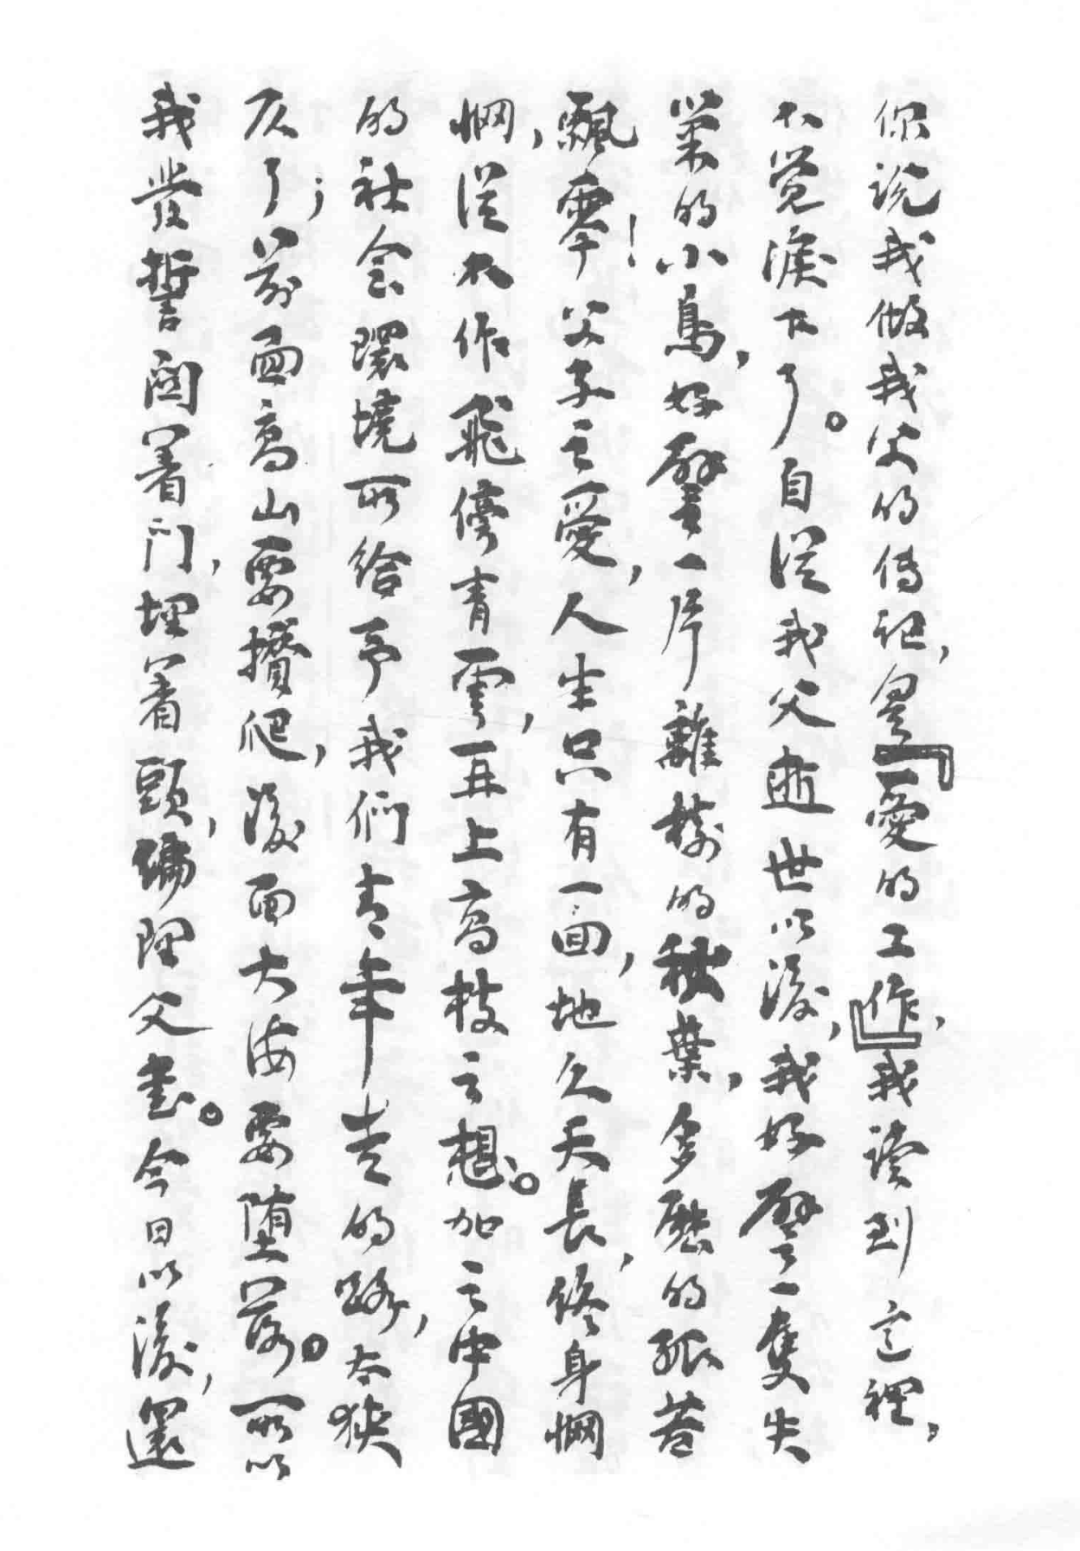 你说我做我父的傳記，是『愛的工作』，我读到这裡，
不觉淚下了。自從我父逝世以後，我好譬一隻失
巢的小鳥，好譬一片離樹的秋葉，多愁的孤苦
飄零！父子之愛，人生只有一回，地久天長，终身惘
惘，從不作飛儔青雲，再上高枝之想。加之中國
的社会環境所给予我们青年走的路，太狹
仄了；前面高山要攢爬，後面大海要堕落。所以
我發誓閉著門，埋著頭，编理父書。今日以後，還